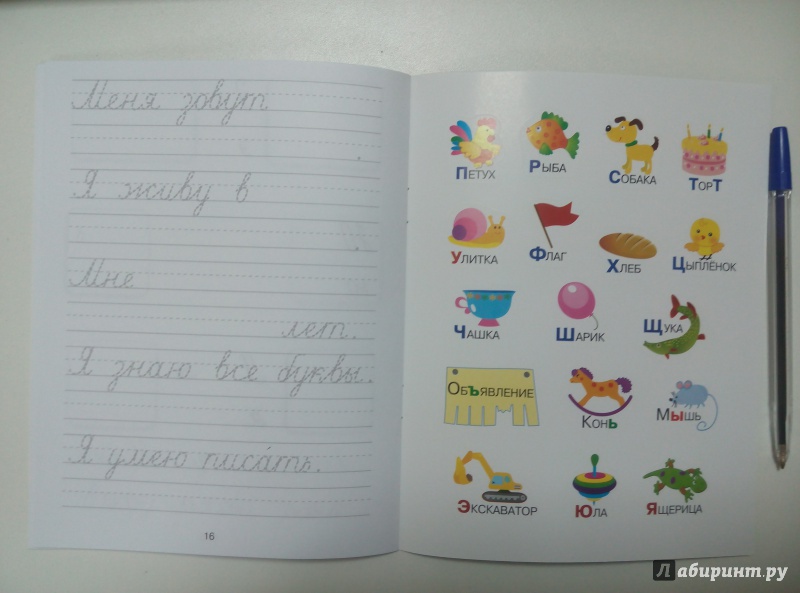 Меня зовут
.
Я живу в
.
Мне
лет.
Я знаю все буквы.
Я умею писа́ть.
16
ПЕТУХ РЫБА СОБАКА ТОРТ
УЛИТКА ФЛАГ ХЛЕБ ЦЫПЛЁНОК
ЧАШКА ШАРИК ЩУКА
ОБЪЯВЛЕНИЕ КОНЬ МЫШЬ
ЭКСКАВАТОР ЮЛА ЯЩЕРИЦА
Лабиринт.ру